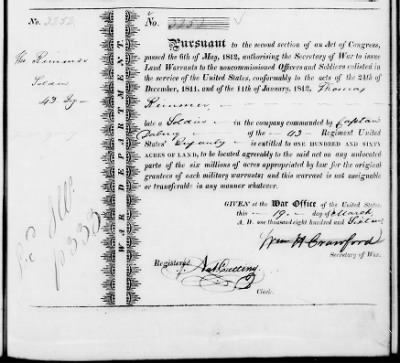 No. 2252
No. 2252
Tho Rimmer
43 Regt
WAR DEPARTMENT.
Pursuant to the second section of an Act of Congress,
passed the 6th of May, 1812, authorising the Secretary of War to issue
Land Warrants to the noncommissioned Officers and Soldiers enlisted in
the service of the United States, conformably to the acts of the 24th of
December, 1811, and of the 11th of January, 1812, Thomas
Rimmer
late a in the company commanded by Captain
of the 43 Regiment United
States' Infantry is entitled to ONE HUNDRED AND SIXTY
ACRES OF LAND, to be located agreeably to the said act on any unlocated
part of the six millions of acres appropriated by law for the original
grantees of such military warrants; and this warrant is not assignable
or transferable in any manner whatever.
GIVEN at the War Office of the United States,
this 19 day of March
A. D. one thousand eight hundred and Sixteen
Wm H Crawford
Secretary of War.
Registered
Clerk.